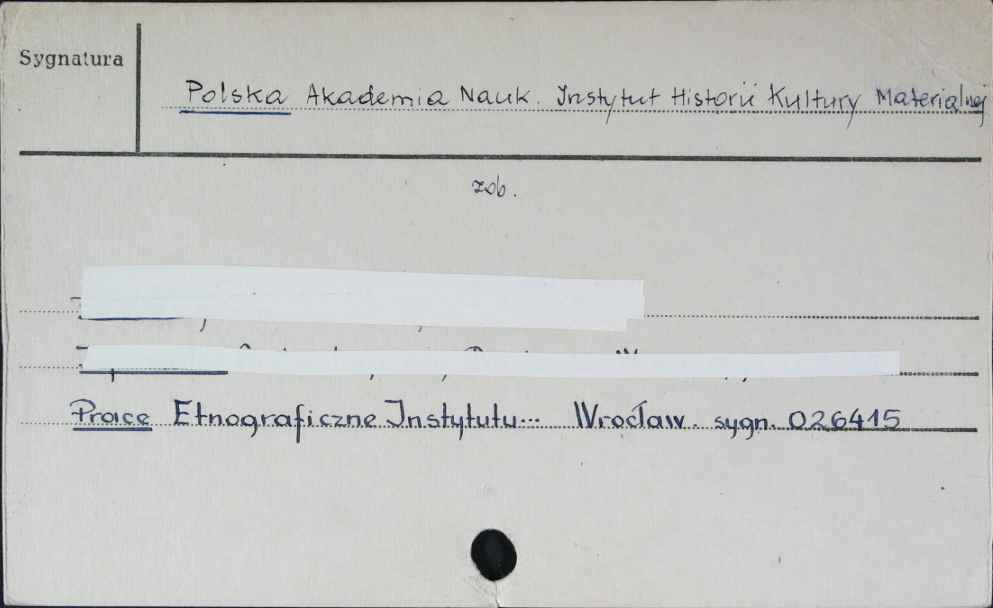 Sygnatura
Polska Akademia Nauk. Instytut Historii Kultury Materialnej
zob.
Prace Etnograficzne Instytutu... Wrocław. sygn. 026415